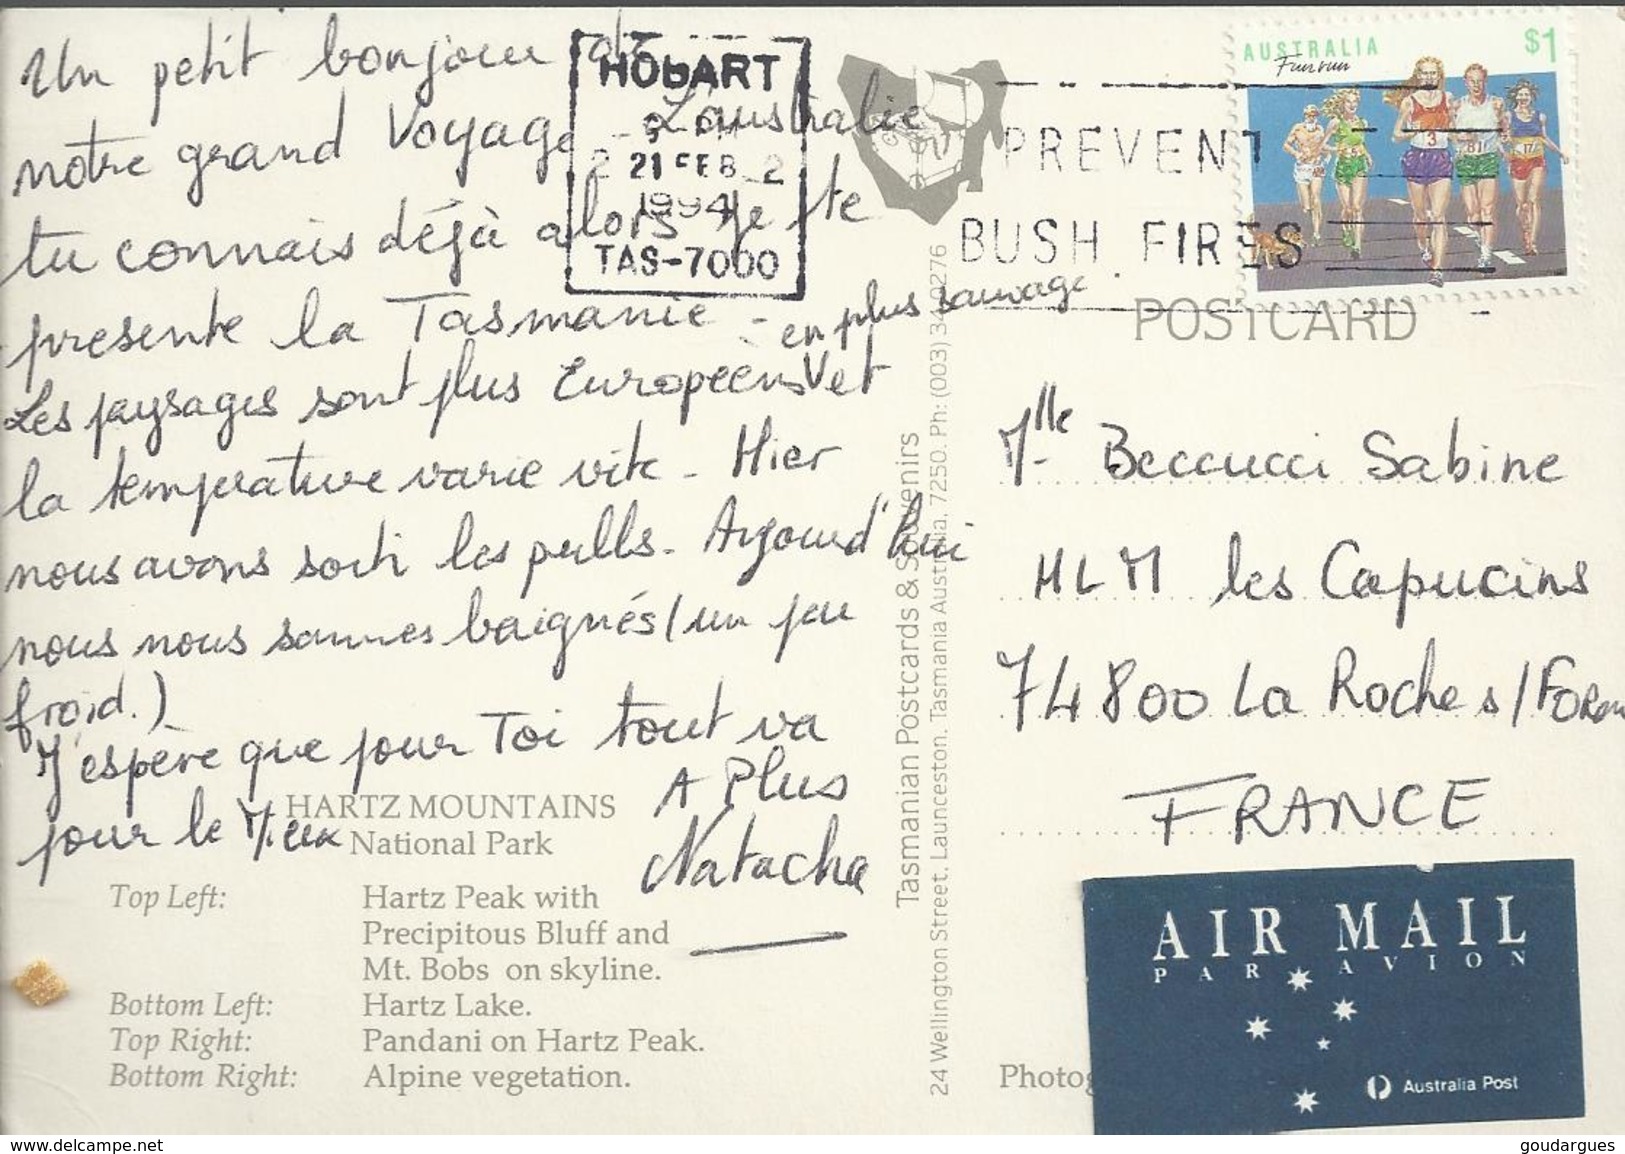 Un petit bonjour de
notre grand Voyage L'australie
tu connais déjà alors je te
presente la Tasmanie -
en plus sauvage.
Les paysages sont plus Européens V et
la température varie vite - Hier
nous avons sorti les pulls - Aujourd'hui
nous nous sommes baignés (un peu
froid.)
J'espère que pour Toi tout va
pour le Mieux
A Plus
Natacha
HARTZ MOUNTAINS
National Park
Top Left: Hartz Peak with
Precipitous Bluff and
Mt. Bobs on skyline.
Bottom Left: Hartz Lake.
Top Right: Pandani on Hartz Peak.
Bottom Right: Alpine vegetation.
HOBART
21 FEB 2
1994
TAS-7000
PREVENT
BUSH FIRES
AUSTRALIA $1
Fun run
3
81
17
POSTCARD
Tasmanian Postcards & Souvenirs
24 Wellington Street, Launceston. Tasmania Australia, 7250. Ph: (003) 34 0276
Mlle Beccucci Sabine
HLM les Capucins
74800 La Roche s/Foron
FRANCE
AIR MAIL
PAR AVION
Australia Post
Photog
goudargues
www.delcampe.net